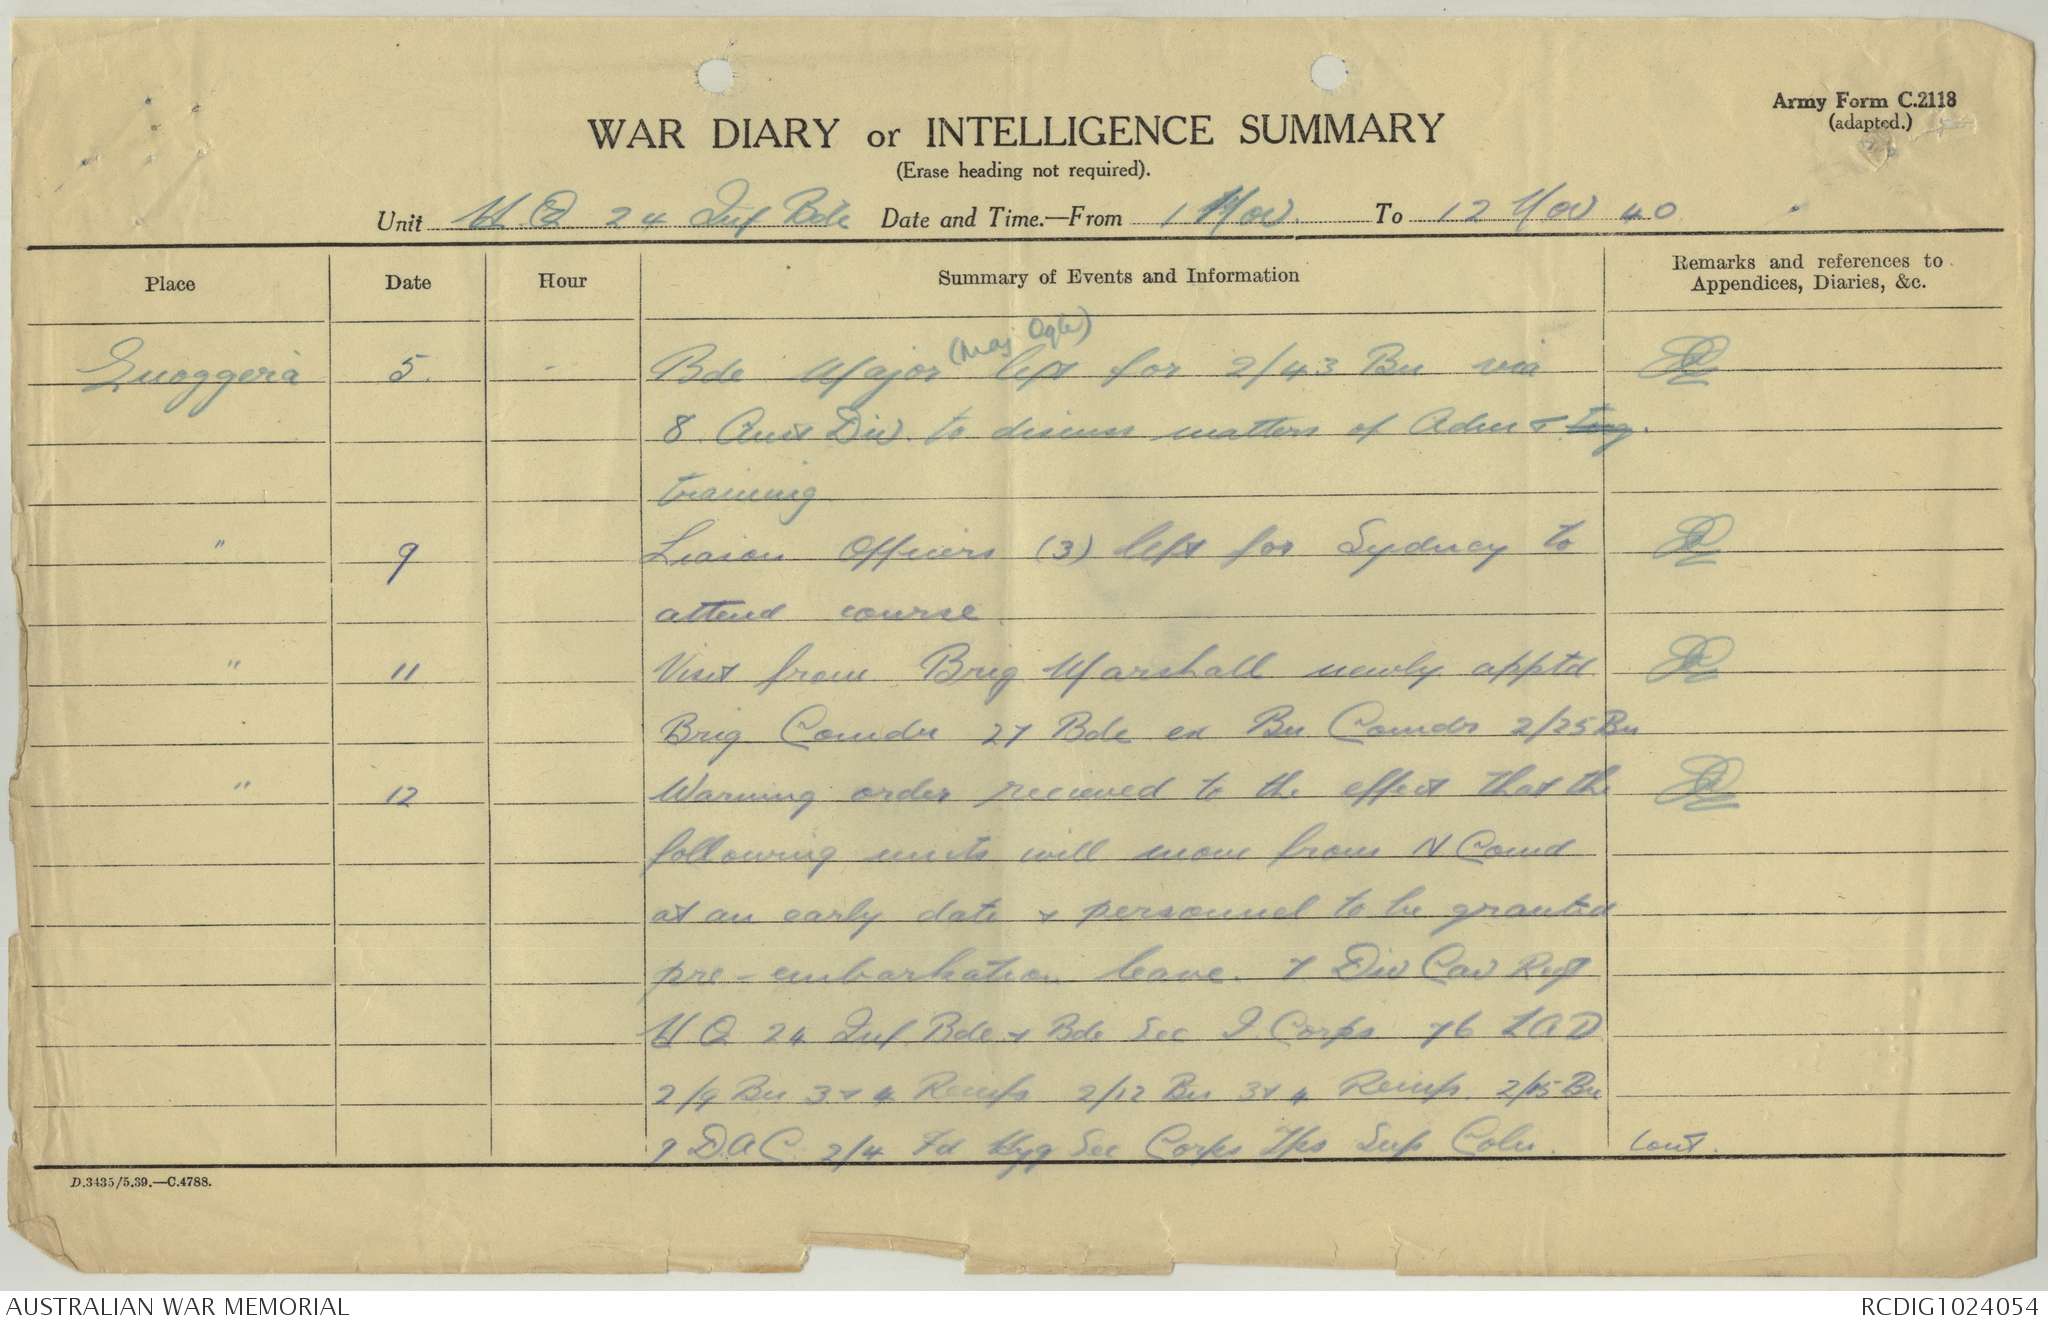 Army Form C.2118
(adapted.)
WAR DIARY or INTELLIGENCE SUMMARY
(Erase heading not required).
Unit H Q 24 Inf Bde Date and Time.—From 1 Nov. To 12 Nov 40
Place Date Hour Summary of Events and Information Remarks and references to Appendices, Diaries, &c.
(Maj Ogle)
Enoggera 5. - Bde Major left for 2/43 Bn via
8 Aust Div. to discuss matters of Adm & trng.
training
" 9 Liason Officers (3) left for Sydney to
attend course.
" 11 Visit from Brig Marshall newly apptd
Brig Comdr 27 Bde ex Bn Comdr 2/25 Bn
" 12 Warning order recieved to the effect that the
following units will move from N Comd
at an early date & personnel to be granted
pre-embarkation leave. 7 Div Cav Regt
H Q 24 Inf Bde & Bde Sec I. Corps 76 LAD
2/9 Bn 3 & 4 Reinfs 2/12 Bn 3 & 4 Reinfs. 2/15 Bn
9 DAC. 2/4 Fd Hyg Sec Corps Tps Sup Coln. Cont.
D.3435/5.39.—C.4788.
AUSTRALIAN WAR MEMORIAL
RCDIG1024054